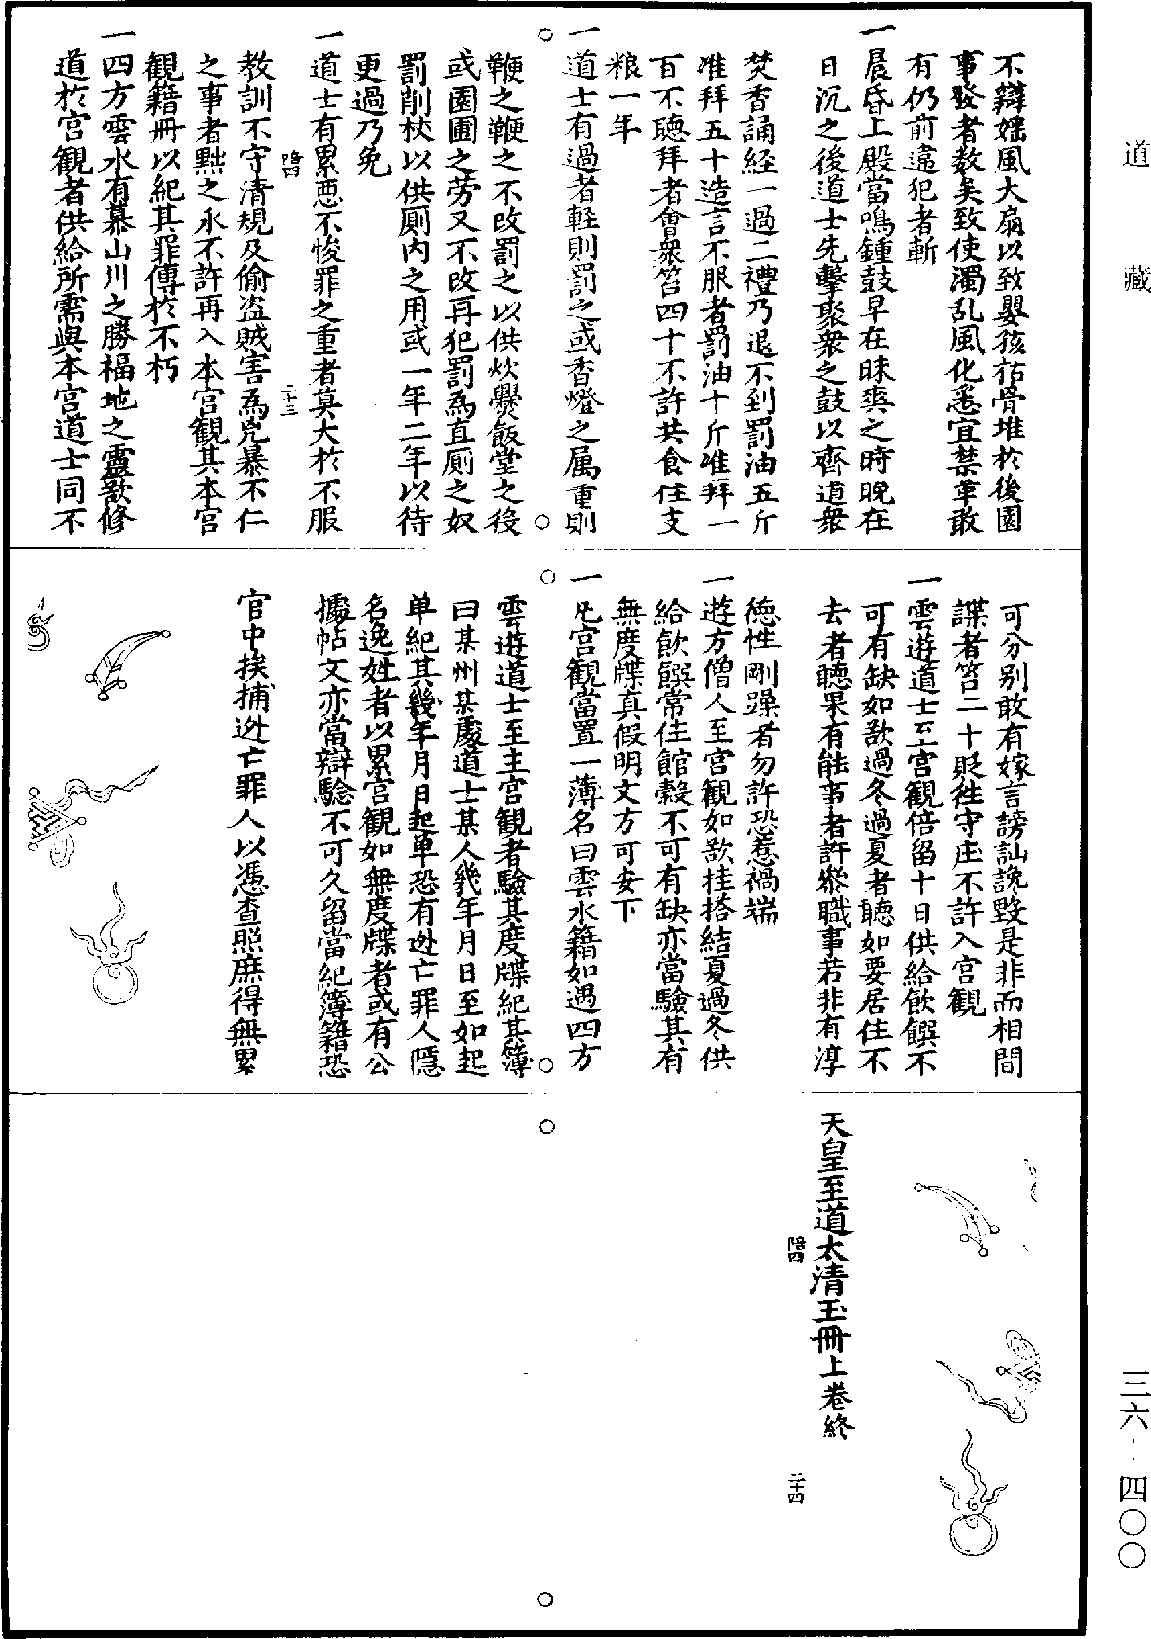 道藏
三六-四〇〇
不辯婬風大扇以致嬰孩枯骨堆於後園
事發者数矣致使濁乱風化悉宜禁革敢
有仍前違犯者斬
一晨昏上殿當鳴鍾鼓早在昧爽之時晚在
日沉之後道士先擊聚衆之鼓以齊道衆
焚香誦經一過二禮乃退不到罰油五斤
准拜五十造言不服者罰油十斤准拜一
百不聴拜者會衆笞四十不許共食住支
粮一年
一道士有過者輕則罰之或香燈之属重則
鞭之鞭之不改罰之以供炊爨飯堂之後
或園圃之劳又不改再犯罰為直厠之奴
罰削杖以供厠内之用或一年二年以待
更過乃免
一道士有累悪不悛罪之重者莫大於不服
二十三
教訓不守清規及偷盗賊害為兇暴不仁
之事者黜之永不許再入本宫觀其本宫
觀籍冊以紀其罪傳於不朽
一四方雲水有慕山川之勝福地之靈欲修
道於宫觀者供給所需與本宫道士同不
可分别敢有嫁言謗訕讒毀是非而相間
諜者笞二十貶徃守庄不許入宫觀
一雲遊道士至宫觀倍留十日供給飲饌不
可有缺如欲過冬過夏者聴如要居住不
去者聴果有能事者許叅職事若非有淳
徳性剛躁者勿許恐惹禍端
一遊方僧人至宫觀如欲挂搭結夏過冬供
給飲饌常住館糓不可有缺亦當驗其有
無度牒真假明文方可安下
一凡宫觀當置一薄名曰雲水籍如遇四方
雲遊道士至主宫觀者驗其度牒紀其簿
曰某州某處道士某人幾年月日至如起
单紀其幾年月日起单恐有迯亡罪人隱
名逸姓者以累宫觀如無度牒者或有公
據帖文亦當辯驗不可久留當紀簿籍恐
官中挨捕迯亡罪人以憑查照庶得無累
天皇至道太清玉冊上卷終
二十四